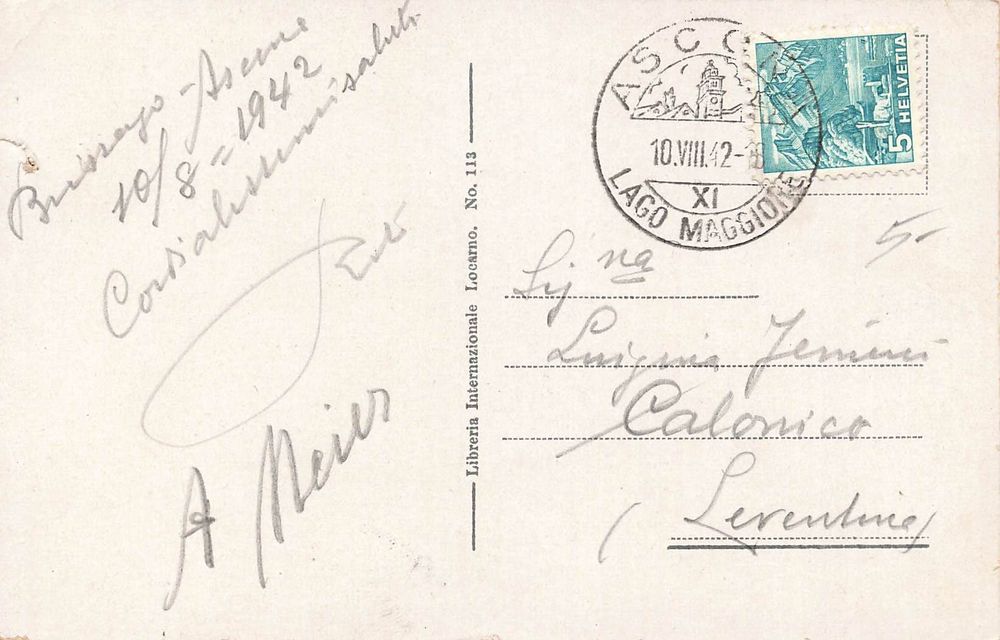 Brissago - Ascona
10/8 = 1942
Cordialissimi saluti
A Meier
Libreria Internazionale Locarno. No. 113
ASCONA
10.VIII.42-
XI
LAGO MAGGIORE
5 HELVETIA
5.-
Sig na
Luigina
Calonico
(Leventina)